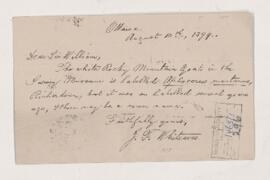 Ottawa,
August 10th, 1899.
Dear Sir William,
The white Rocky Mountain Goat in the
Survey Museum is labelled montanus,
Richardson, but it was so labelled several years
ago, & there may be a newer name.
Faithfully yours,
J. F. Whiteaves